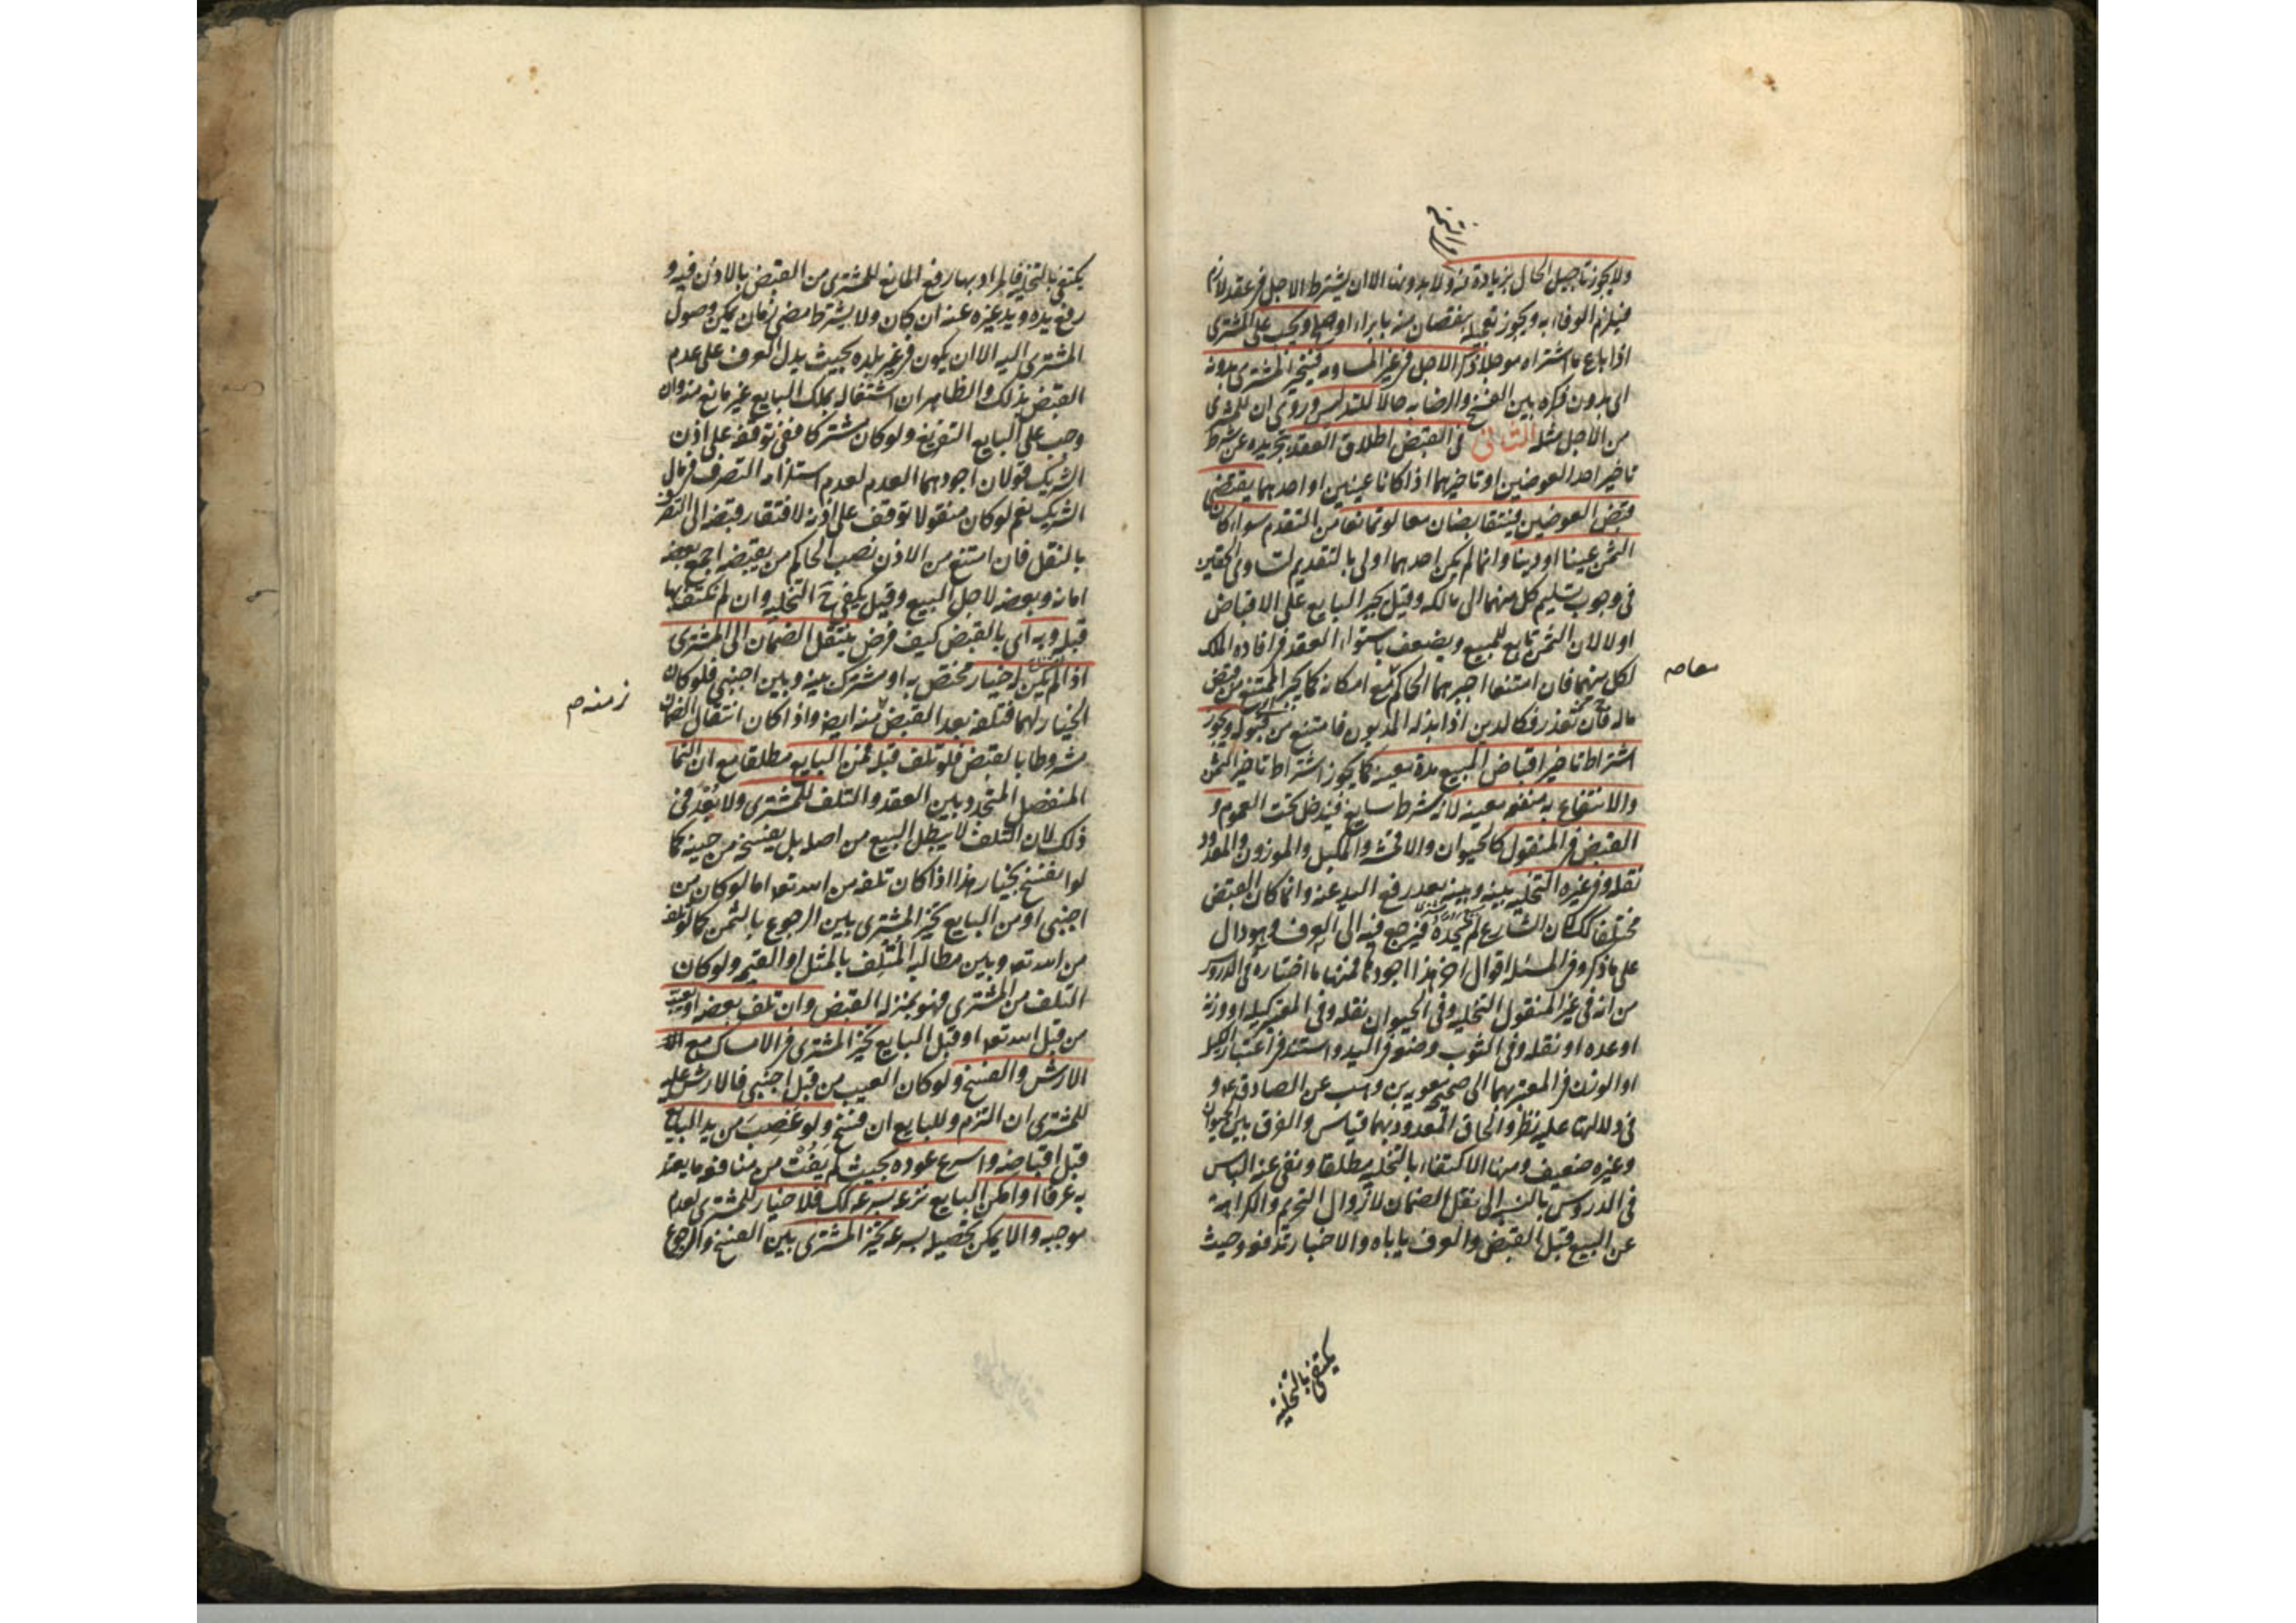 ولا يجوز تاجيل الحال بزيادة فيه ولا بدونها الا ان يشترط الاجل في عقد لازم
فيلزم الوفاء به ويجوز تعجيله بنقصان منه بابراء او صلح ويجب على المشترى
اذا باع ما اشتراه موجلا ذكر الاجل في غير المساومه فيتخير المشترى بدونه
اى بدون ذكره بين الفسخ والرضا به حالا للتدليس وروى ان للمشترى
من الاجل مثله الثانى فى القبض اطلاق العقد بتجريده عن شرط
تاخير احد العوضين او تاخيرهما اذا كانا عينين او احدهما يقتضى
قبض العوضين فيتقابضان معا لو تمانعا من التقدم سواء كان
الثمن عينا او دينا وانما لم يكن احدهما اولى بالتقديم لتساوى الحقين
فى وجوب تسليم كل منهما الى مالكه وقيل يجبر البايع على الاقباض
اولا لان الثمن تابع للمبيع ويضعف باستواء العقد فى افادة الملك
لكل منهما فان امتنعا اجبرهما الحاكم مع امكانه كما يجبر الممتنع من قبض
ماله فان تعذر فكالدين اذا بذله المديون فامتنع من قبوله ويجوز
اشتراط تاخير اقباض المبيع مدة معينه كما يجوز اشتراط تاخير الثمن
والانتفاع به منفعه معينه لانه شرط سايغ فيدخل تحت العموم و
القبض فى المنقول كالحيوان والاقمشه والمكيل والموزون والمعدود
نقله وفى غيره التخليه بينه وبينه بعد رفع اليد عنه وانما كان القبض
مختلفا كك لان الشارع لم يحده فيرجع فيه الى العرف وهو دال
على ما ذكر وفى المسئله اقوال اخر هذا اجودها فمنها ما اختاره فى الدروس
من انه فى غير المنقول التخليه وفى الحيوان نقله وفى المعتبر كيله او وزنه
او عده او نقله وفى الثوب وضعه فى اليد واستند فى اعتبار الكيل
او الوزن فى المعتبر بهما الى صحيحة معويه بن وهب عن الصادق ع و
فى دلالتها عليه نظر والحاق المعدود بهما قياس والفرق بين الحيوان
وغيره ضعيف ومنها الاكتفاء بالتخليه مطلقا ونفى عنه الباس
فى الدروس بالنسبه الى نقل الضمان لا زوال التحريم والكراهة
عن البيع قبل القبض والعرف ياباه والاخبار تدفعه وحيث
يكتفى بالتخلية
يكتفى بالتخليه فالمراد بها رفع المانع للمشترى من القبض بالاذن فيه و
رفع يده ويد غيره عنه ان كان ولا يشترط مضى زمان يمكن وصول
المشترى اليه الا ان يكون فى غير بلده بحيث يدل العرف على عدم
القبض بذلك والظاهر ان اشتغاله بملك البايع غير مانع منه وان
وجب على البايع التفريغ ولو كان مشتركا ففى توقفه على اذن
الشريك قولان اجودهما العدم لعدم استلزامه التصرف فى مال
الشريك نعم لو كان منقولا توقف على اذنه لافتقار قبضه الى التصرف
بالنقل فان امتنع من الاذن نصب الحاكم من يقبضه اجمع بعضه
امانه وبعضه لاجل البيع وقيل يكفى ح التخليه وان لم نكتف بها
قبله وبه اى بالقبض كيف فرض ينتقل الضمان الى المشترى
اذا لم يكن له خيار مختص به او مشترك بينه وبين اجنبى فلو كان
الخيار لهما فتلفه بعد القبض منه ايضا واذا كان انتقال الضمان
زمنه م
مشروطا بالقبض فلو تلف قبله فمن البايع مطلقا مع ان النماء
المنفصل المتجدد بين العقد والتلف للمشترى ولا بعد فى
ذلك لان التلف لا يبطل البيع من اصله بل يفسخه من حينه كما
لو انفسخ بخيار هذا اذا كان تلفه من الله تعه اما لو كان من
اجنبى او من البايع تخير المشترى بين الرجوع بالثمن كما لو تلف
من الله تعه وبين مطالبه المتلف بالمثل او القيمه ولو كان
التلف من المشترى فهو بمنزلة القبض وان تلف بعضه او تعيب
من قبل الله تعه او قبل البايع تخير المشترى فى الامساك مع
الارش والفسخ ولو كان العيب من قبل اجنبى فالارش عليه
للمشترى ان التزم وللبايع ان فسخ ولو غصب من يد البايع
قبل اقباضه واسرع عوده بحيث لم يفت من منافعه ما يعتد
به عرفا او امكن البايع نزعه بسرعه كك فلا خيار للمشترى لعدم
موجبه والا يمكن تحصيله بسرعه تخير المشترى بين الفسخ والرجوع